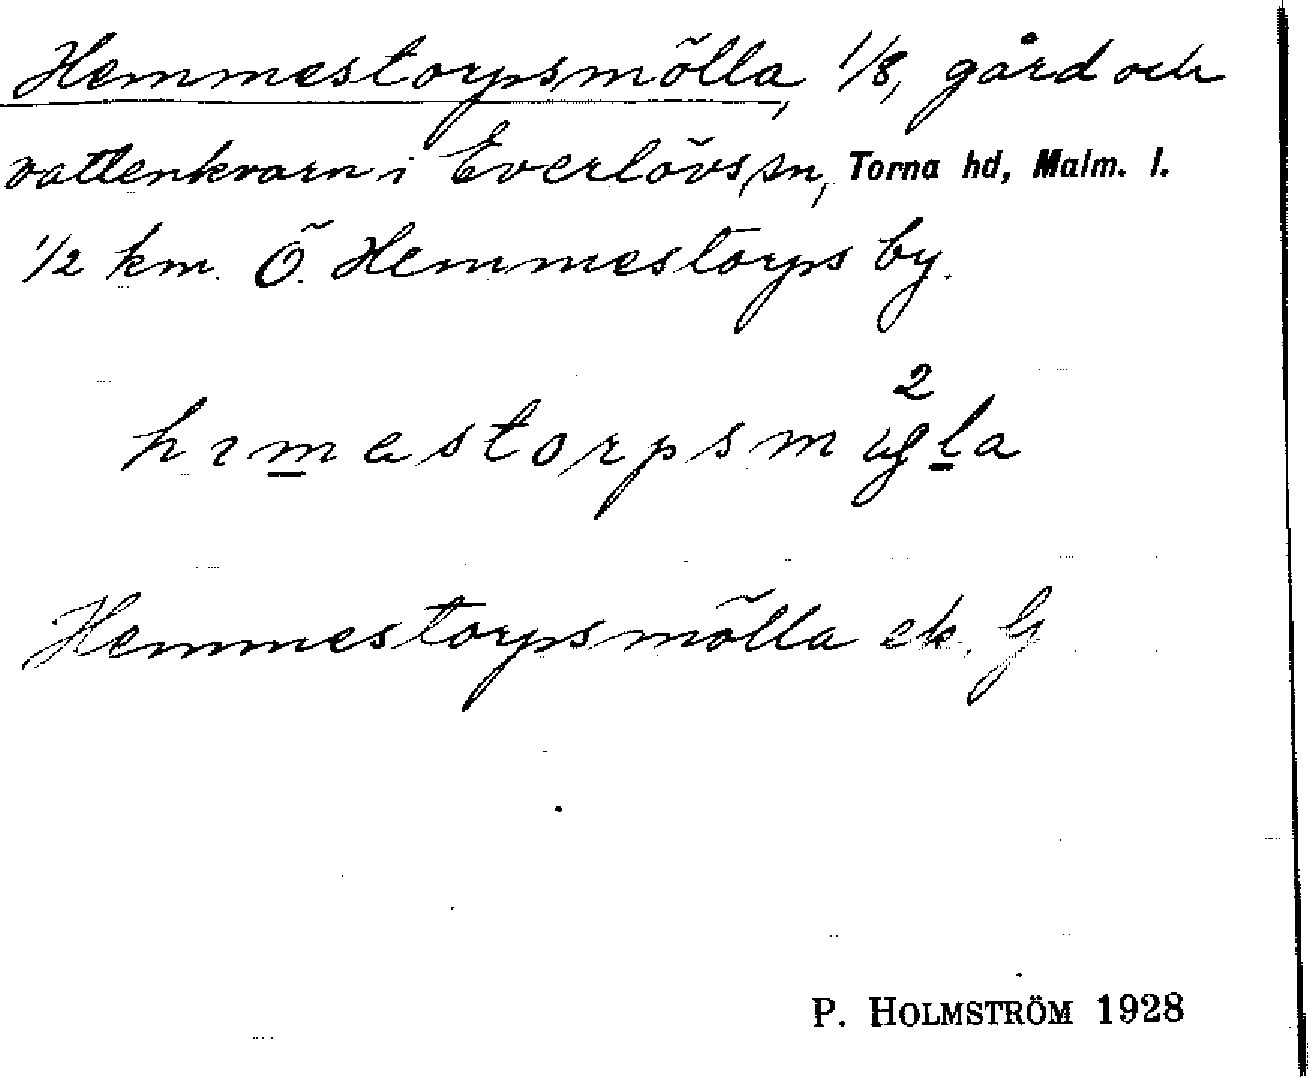 Hemmestorpsmölla, 1/8, gård och
vattenkvarn i Everlövs sn, Torna hd, Malm. l.
1/2 km. Ö. Hemmestorps by.
2
Hemmestorpsmölla ek. G
P. HOLMSTRÖM 1928